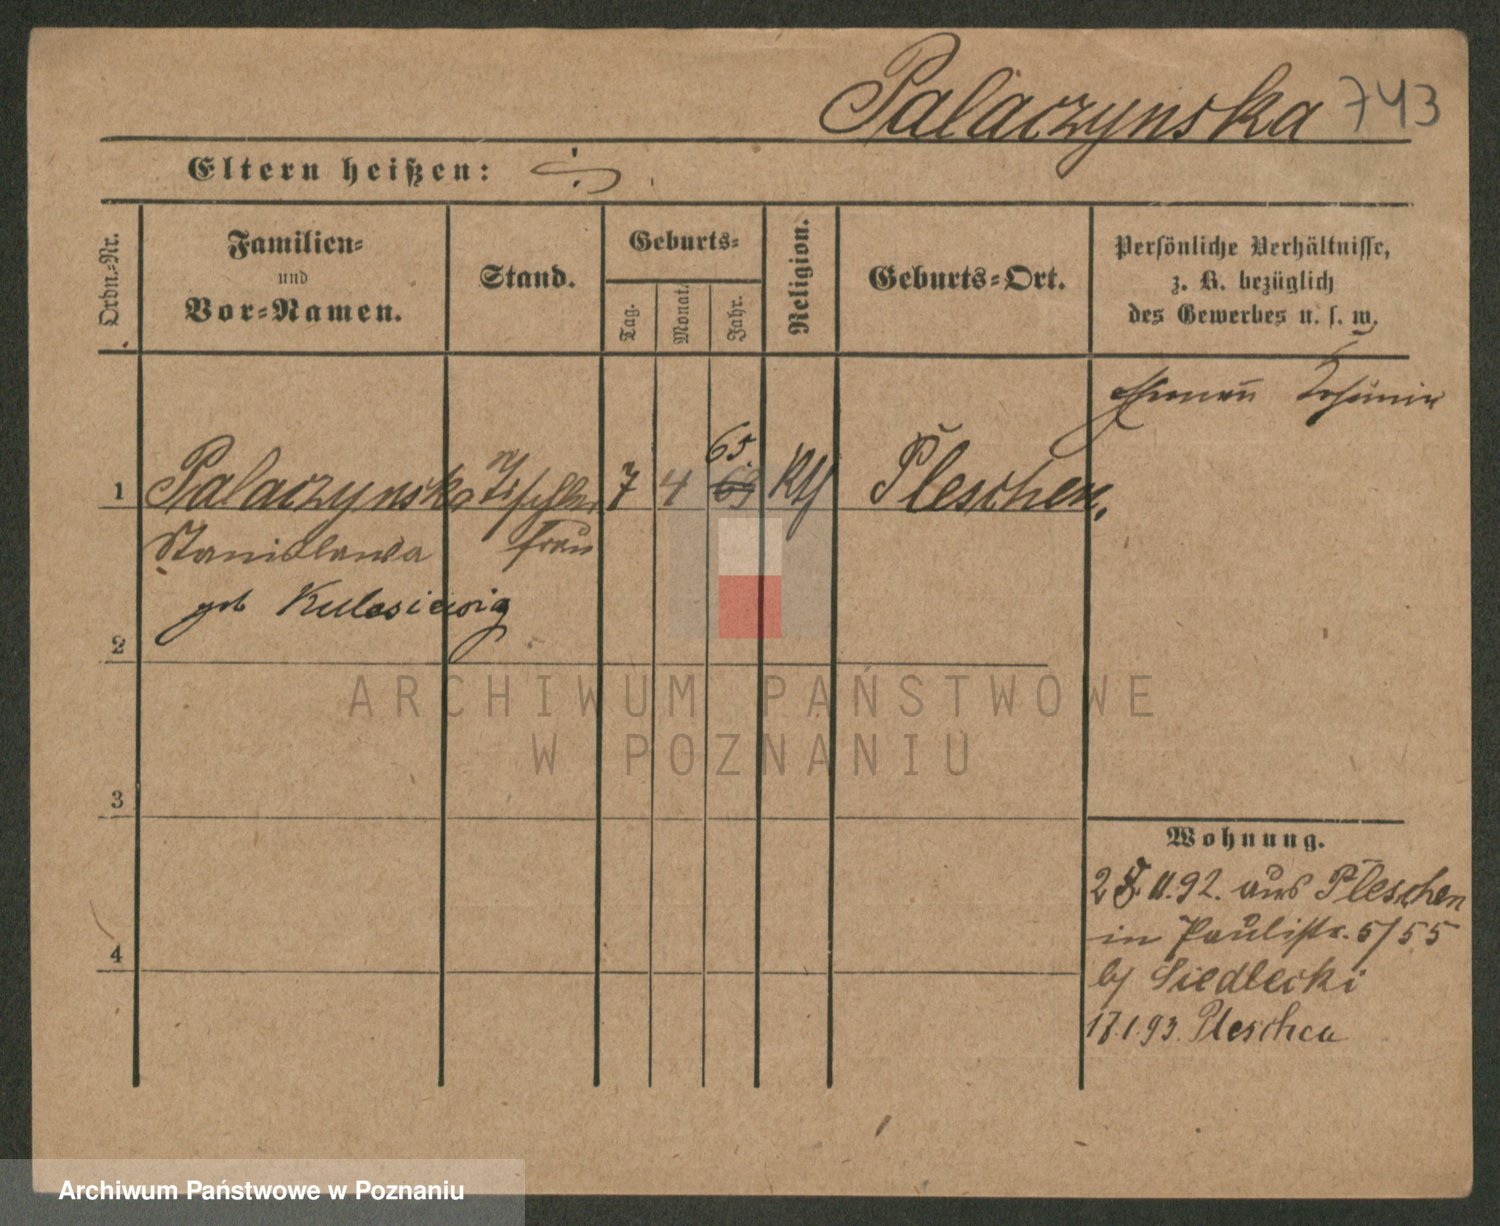 Palaczynska 743
Eltern heißen:
Ordn.-Nr.
Familien-
und
Vor-Namen.
Stand.
Geburts-
Tag.
Monat.
Jahr.
Religion.
Geburts-Ort.
Persönliche Verhältnisse,
z. B. bezüglich
des Gewerbes u. s. w.
Ehemann
65
1 Palaczynska Tischler 7 4 63 Kth Pleschen.
Stanislawa frau
geb Kulesiewig
2
3
4
Wohnung.
11.92. aus Pleschen
in Paulistr. 5/55
b/ Siedlecki
17.1.93. Pleschen
ARCHIWUM PAŃSTWOWE
W POZNANIU
Archiwum Państwowe w Poznaniu